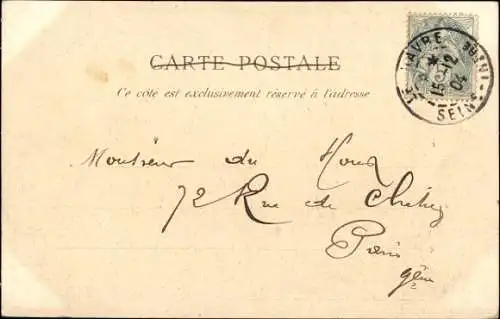 CARTE POSTALE
Ce côté est exclusivement réservé à l'adresse
LE HAVRE
15 12 04
SEINE-INFRE
Monsieur du Houx
72 Rue de Clichy
Paris